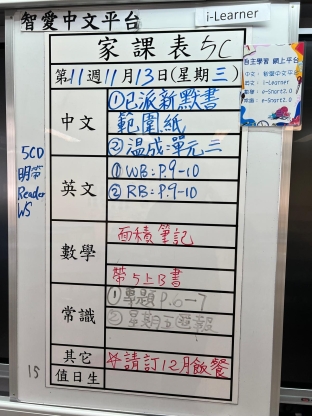 智愛中文平台
i-Learner
家課表5C
自主學習 網上平台
中文：智愛中文平台
英文：i-Learner
數學：e-Smart2.0
常識：e-Smart2.0
第11週11月13日(星期三)
中文
①已派新默書
範圍紙
②温成:單元三
5CD
明帶
Reader
WS
英文
① WB:P.9-10
② RB:P.9-10
數學
面積筆記
帶5上B書
常識
①專題P.6-7
②星期五週報
其它
☆請訂12月飯餐
值日生
15